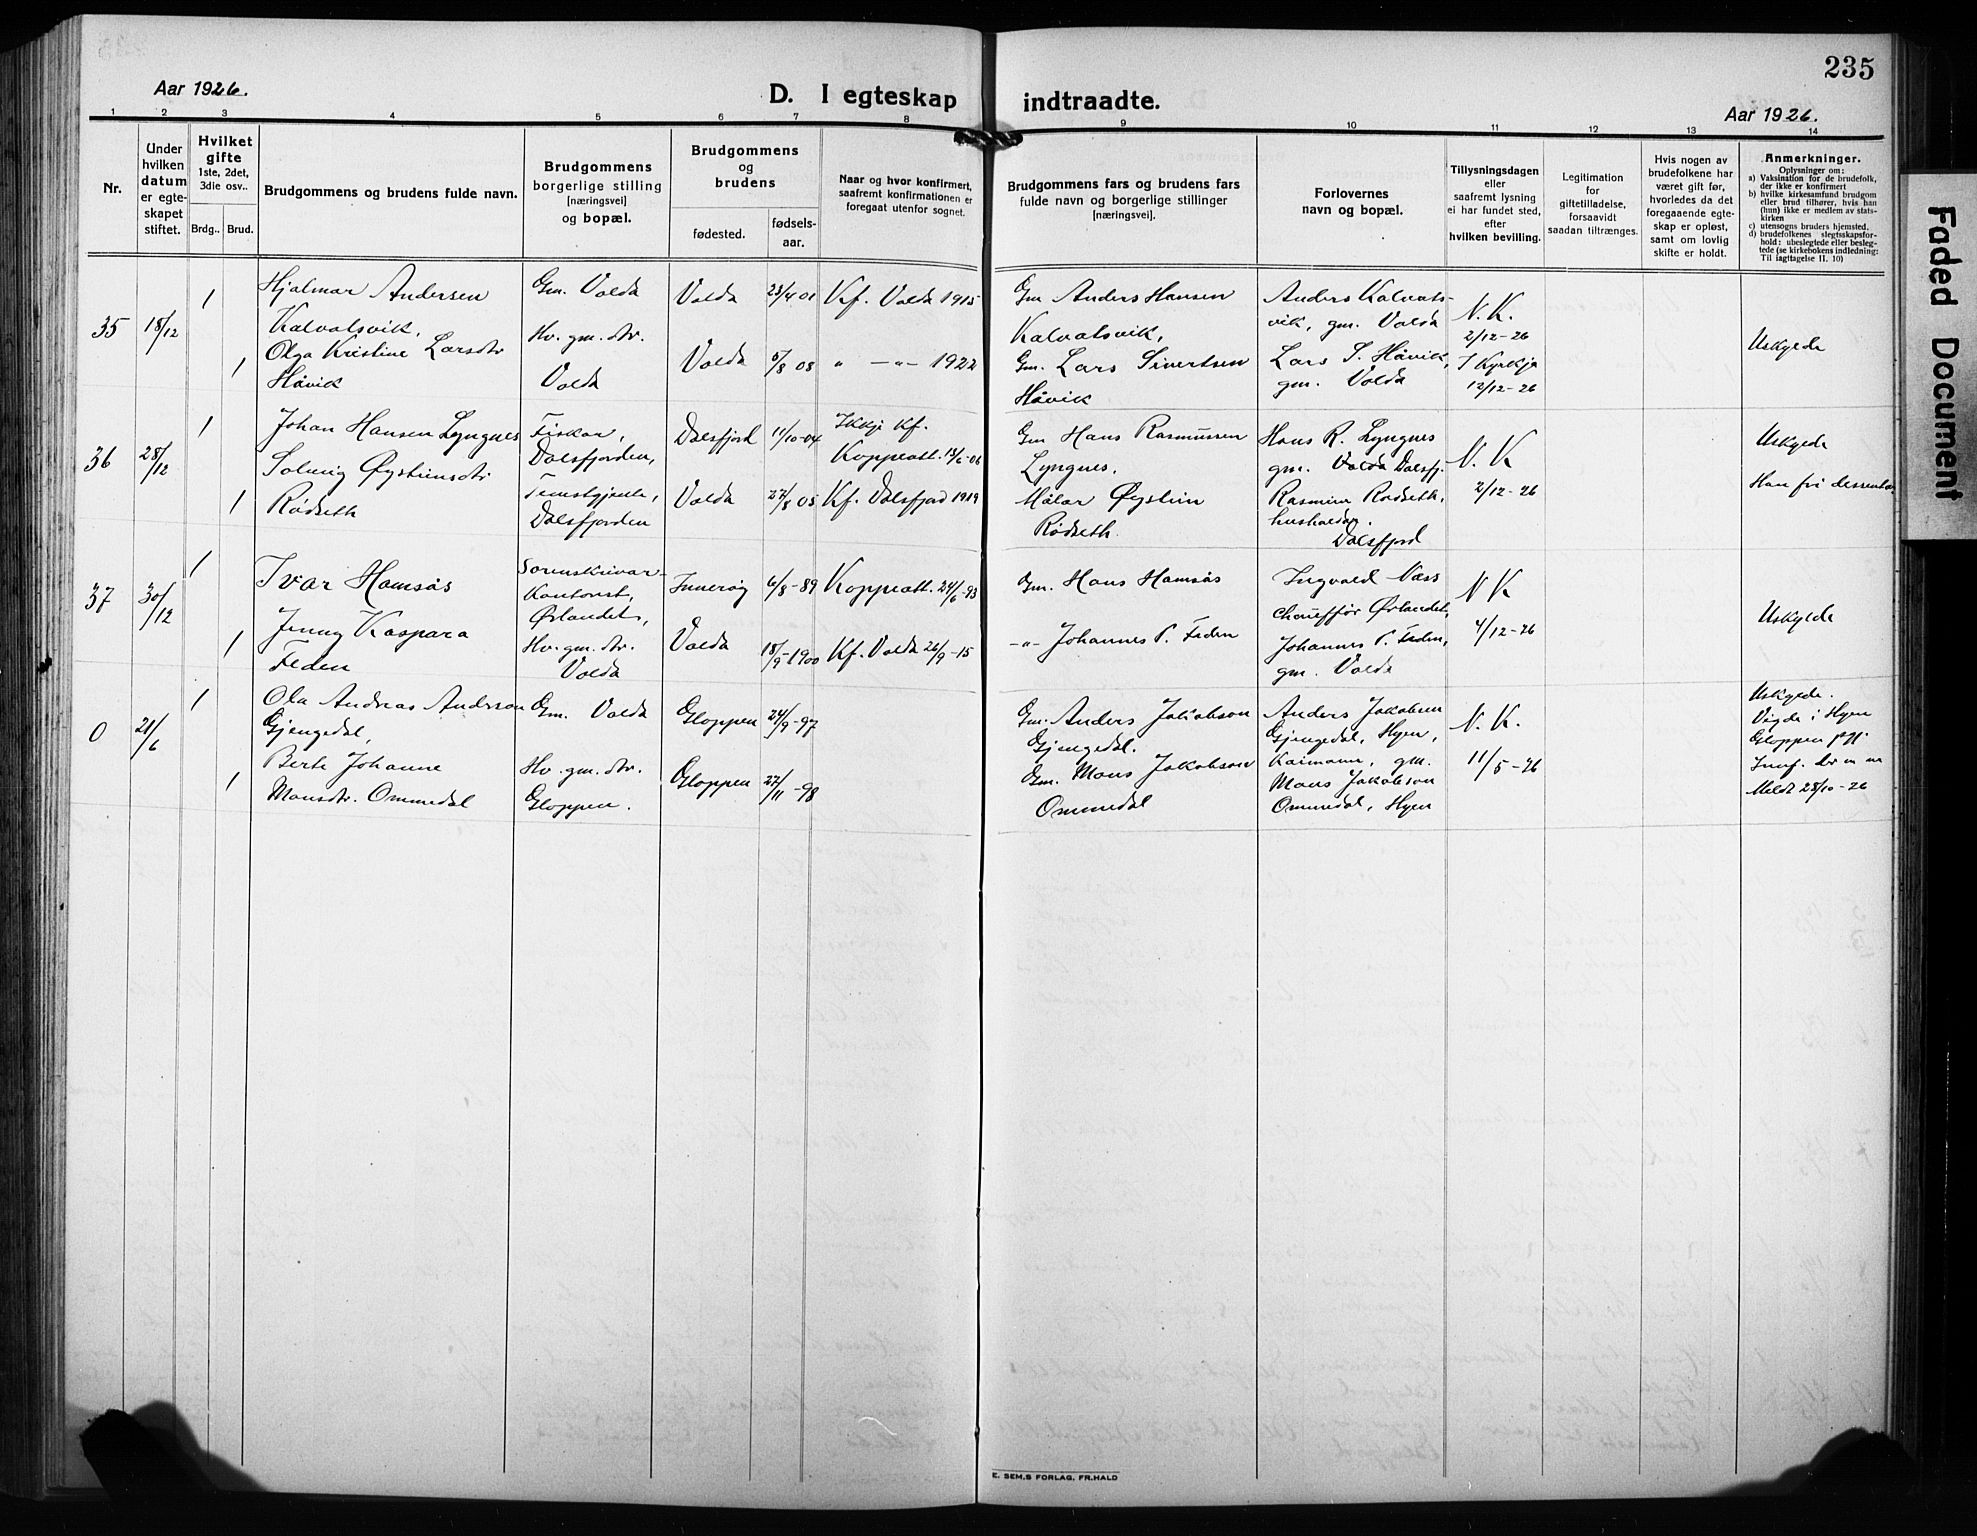 235
Aar 1926.
D. I egteskap indtraadte.
Aar 1926.
1 2 3 4 5 6 7 8 9 10 11 12 13 14
Nr.
Under
hvilken
datum
er egte-
skapet
stiftet.
Hvilket
gifte
1ste, 2det,
3die osv..
Brdg.. Brud.
Brudgommens og brudens fulde navn.
Brudgommens
borgerlige stilling
[næringsvei]
og bopæl.
Brudgommens
og
brudens
fødested.
fødsels-
aar.
Naar og hvor konfirmert,
saafremt konfirmationen er
foregaat utenfor sognet.
Brudgommens fars og brudens fars
fulde navn og borgerlige stillinger
[næringsvei].
Forlovernes
navn og bopæl.
Tillysningsdagen
eller
saafremt lysning
ei har fundet sted,
efter
hvilken bevilling.
Legitimation
for
giftetilladelse,
forsaavidt
saadan tiltrænges.
Hvis nogen av
brudefolkene har
været gift før,
hvorledes da det
foregaaende egte-
skap er opløst,
samt om lovlig
skifte er holdt.
Anmerkninger.
Oplysninger om:
a) Vaksination for de brudefolk,
der ikke er konfirmert
b) hvilke kirkesamfund brudgom
eller brud tilhører, hvis han
(hun) ikke er medlem av stats-
kirken
c) utensogns bruders hjemsted.
d) brudefolkenes slegtsskapsfor-
hold: ubeslegtede eller besleg-
tede (se kirkebokens indledning:
Til iagttagelse II. 10)
35
18/12
1
Hjalmar Andersen
Kalvatsvik,
Gm. Volda
Volda
23/4 01
Kf. Volda 1915
Gm Anders Hansen
Kalvatsvik,
Anders Kalvats-
vik, gm. Volda
N. K.
2/12-26
I Kyrkja
12/12-26
Uskylde
1
Olga Kristine Larsdtr
Håvik
Hv. gm. dtr.
Volda
Volda
5/8 03
" —"— 1922
Gm. Lars Sivertsen
Håvik
Lars S. Håvik,
gm. Volda
36
28/12
1
Johan Hansen Lyngnes
Fiskar,
Dalsfjorden,
Dalsfjord
11/10-04
Ikkje Kf.
Koppeatt. 13/6-06
Gm Hans Rasmussen
Lyngnes,
Hans R. Lyngnes
gm. Volda Dalsfj.
N. K
2/12-26
Uskylde
1
Solveig Øysteinsdtr
Rødseth
Tenestgjente,
Dalsfjorden
Volda
27/8 05
Kf. Dalsfjord 1919
Målar Øystein
Rødseth
Rasmine Rødseth,
Dalsfjord
37
30/12
1
Ivar Hamsås
Sorenskrivar-
Kontorist,
Ørlandet,
Innerøy
6/8-89
Koppeatt. 24/6-93
Gm. Hans Hamsås
Ingvald Næss
chauffør Ørlandet,
N K
4/12-26
Uskylde
1
Jenny Kaspara
Feden
Hv. gm. dtr.
Volda
Volda
18/9-1900
Kf. Volda 26/9-15
-"- Johannes P. Feden
Johannes P. Feden,
gm. Volda
0
21/6
1
Ola Andreas Anderson
Gjengedal,
Gm. Volda
Gloppen
24/9-97
Gm. Anders Jakobson
Gjengedal.
Anders Jakobsen
Gjengedal, Hyen,
N. K.
11/5-26
Uskylde.
Vigde i Hyen
Gloppen
Meldt 28/10-26
1
Berte Johanne
Monsdtr. Ommedal
Hv. gm. dtr.
Gloppen.
Gloppen
27/11-98
Gm. Mons Jakobson
Ommedal
gm.
Mons Jakobson
Ommedal, Hyen
E. SEM.S FORLAG, FR.HALD
Faded Document